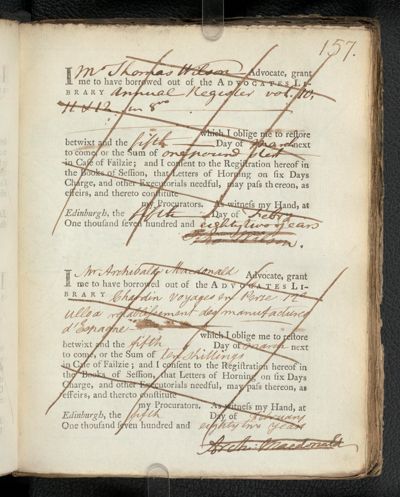 157.
I Mr Thomas Wilson Advocate, grant
me to have borrowed out of the ADVOCATES LI-
BRARY Annual Register vol. 10,
11 & 12 in 8vo
which I oblige me to restore
betwixt and the fifth Day of March next
to come, or the Sum of one pound ster
in Case of Failzie; and I consent to the Registration hereof in
the Books of Session, that Letters of Horning on six Days
Charge, and other Executorials needful, may pass thereon, as
effeirs, and thereto constitute
my Procurators. As witness my Hand, at
Edinburgh, the fifth Day of Febry
One thousand seven hundred and eighty two years
Tho Wilson.
I Mr Archibald Macdonald Advocate, grant
me to have borrowed out of the ADVOCATES LI-
BRARY Chardin Voyages en Perse
Ulloa retablissement des manufactures
d'Espagne
which I oblige me to restore
betwixt and the fifth Day of March next
to come, or the Sum of ten shillings
in Case of Failzie; and I consent to the Registration hereof in
the Books of Session, that Letters of Horning on six Days
Charge, and other Executorials needful, may pass thereon, as
effeirs, and thereto constitute
my Procurators. As witness my Hand, at
Edinburgh, the fifth Day of February
One thousand seven hundred and eighty two years
Arch: Macdonald